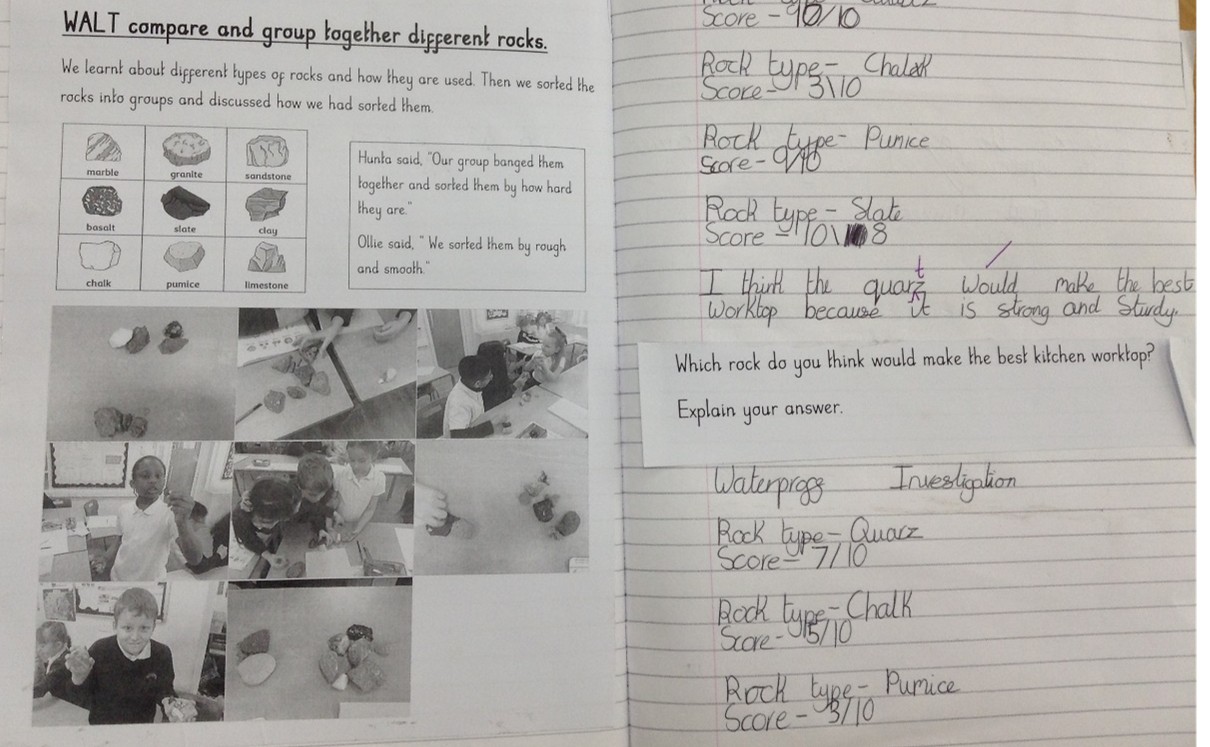 WALT compare and group together different rocks.
We learnt about different types of rocks and how they are used. Then we sorted the
rocks into groups and discussed how we had sorted them.
marble granite sandstone
basalt slate clay
chalk pumice limestone
Hunta said, "Our group banged them
together and sorted them by how hard
they are."
Ollie said, " We sorted them by rough
and smooth."
Score - 10/10
Rock type- Chalk
Score- 3\10
Rock type- Pumice
Score- 9/10
Rock type- Slate
Score - 10\8
t
I think the quarz would make the best
worktop because it is strong and Sturdy.
Which rock do you think would make the best kitchen worktop?
Explain your answer.
Investigation
Rock type- Quarz
Score- 7/10
Rock type- Chalk
Score- 5/10
Rock type- Pumice
Score- 3/10